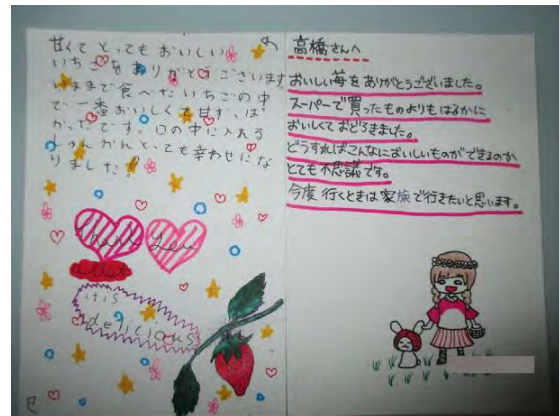 甘くてとってもおいしい
いちごをありがとうございます。
いままで食べたいちごの中
で一番おいしくて甘ずっぱ
かったです。口の中に入れる
しゅんかんとっても幸わせにな
りました!
thank you
it is
delicious
高橋さんへ
おいしい苺をありがとうございました。
スーパーで買ったものよりもはるかに
おいしくておどろきました。
どうすればこんなにおいしいものができるのか
とても不思議です。
今度行くときは家族で行きたいと思います。